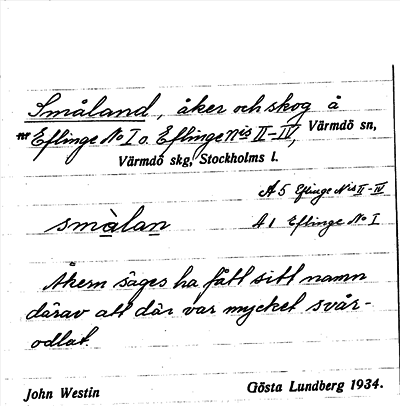 Småland, åker och skog å
Eflinge No I o. Eflinge nris II-IV, Värmdö sn,
Värmdö skg, Stockholms l.
A 5 Eflinge Nris II-IV
smàlan A 1 Eflinge No I
Åkern säges ha fått sitt namn
därav att där var mycket svår-
odlat.
John Westin Gösta Lundberg 1934.